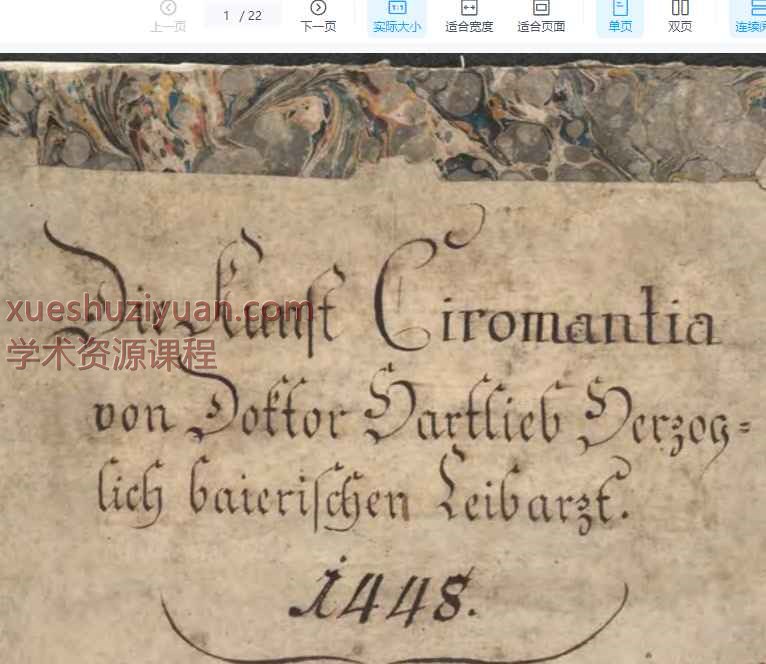 上一页
1 / 22
下一页
实际大小
适合宽度
适合页面
单页
双页
连续阅
Die Kunst Ciromantia
xueshuziyuan.com
学术资源课程
von Doktor Hartlieb Herzog=
lich baierischen Leibarzt.
1448.